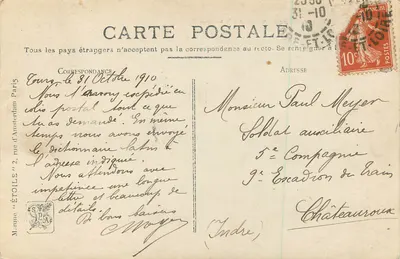 CARTE POSTALE
Tous les pays étrangers n'acceptent pas la correspondance au recto. Se renseigner à la
CORRESPONDANCE
ADRESSE
Tours, le 31 Octobre 1910
Nous t'avons expédié en
colis postal tout ce que
tu as demandé. En même
temps nous avons envoyé
le dictionnaire latin à
l'adresse indiquée.
Nous attendons avec
impatience une longue
lettre et beaucoup de
détails.
Bons baisers
Meyer
Monsieur Paul Meyer
Soldat auxiliaire
5e Compagnie
9e Escadron de Train
Châteauroux
(Indre)
31-10
10
10
POSTES
Marque "ÉTOILE" 2, rue d'Amsterdam Paris